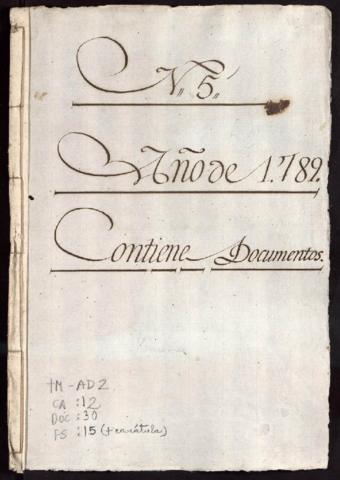 N,, 5,,
Año de 1.789.
Contiene Documentos.
TM-AD2
CA :12
DOC :30
FS :15 (+carátula)